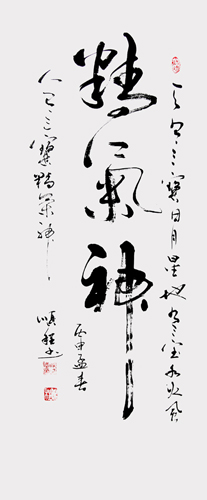 天有三寶日月星地有三寶水火風
精氣神
人有三寶精氣神
丙申孟春
順程书